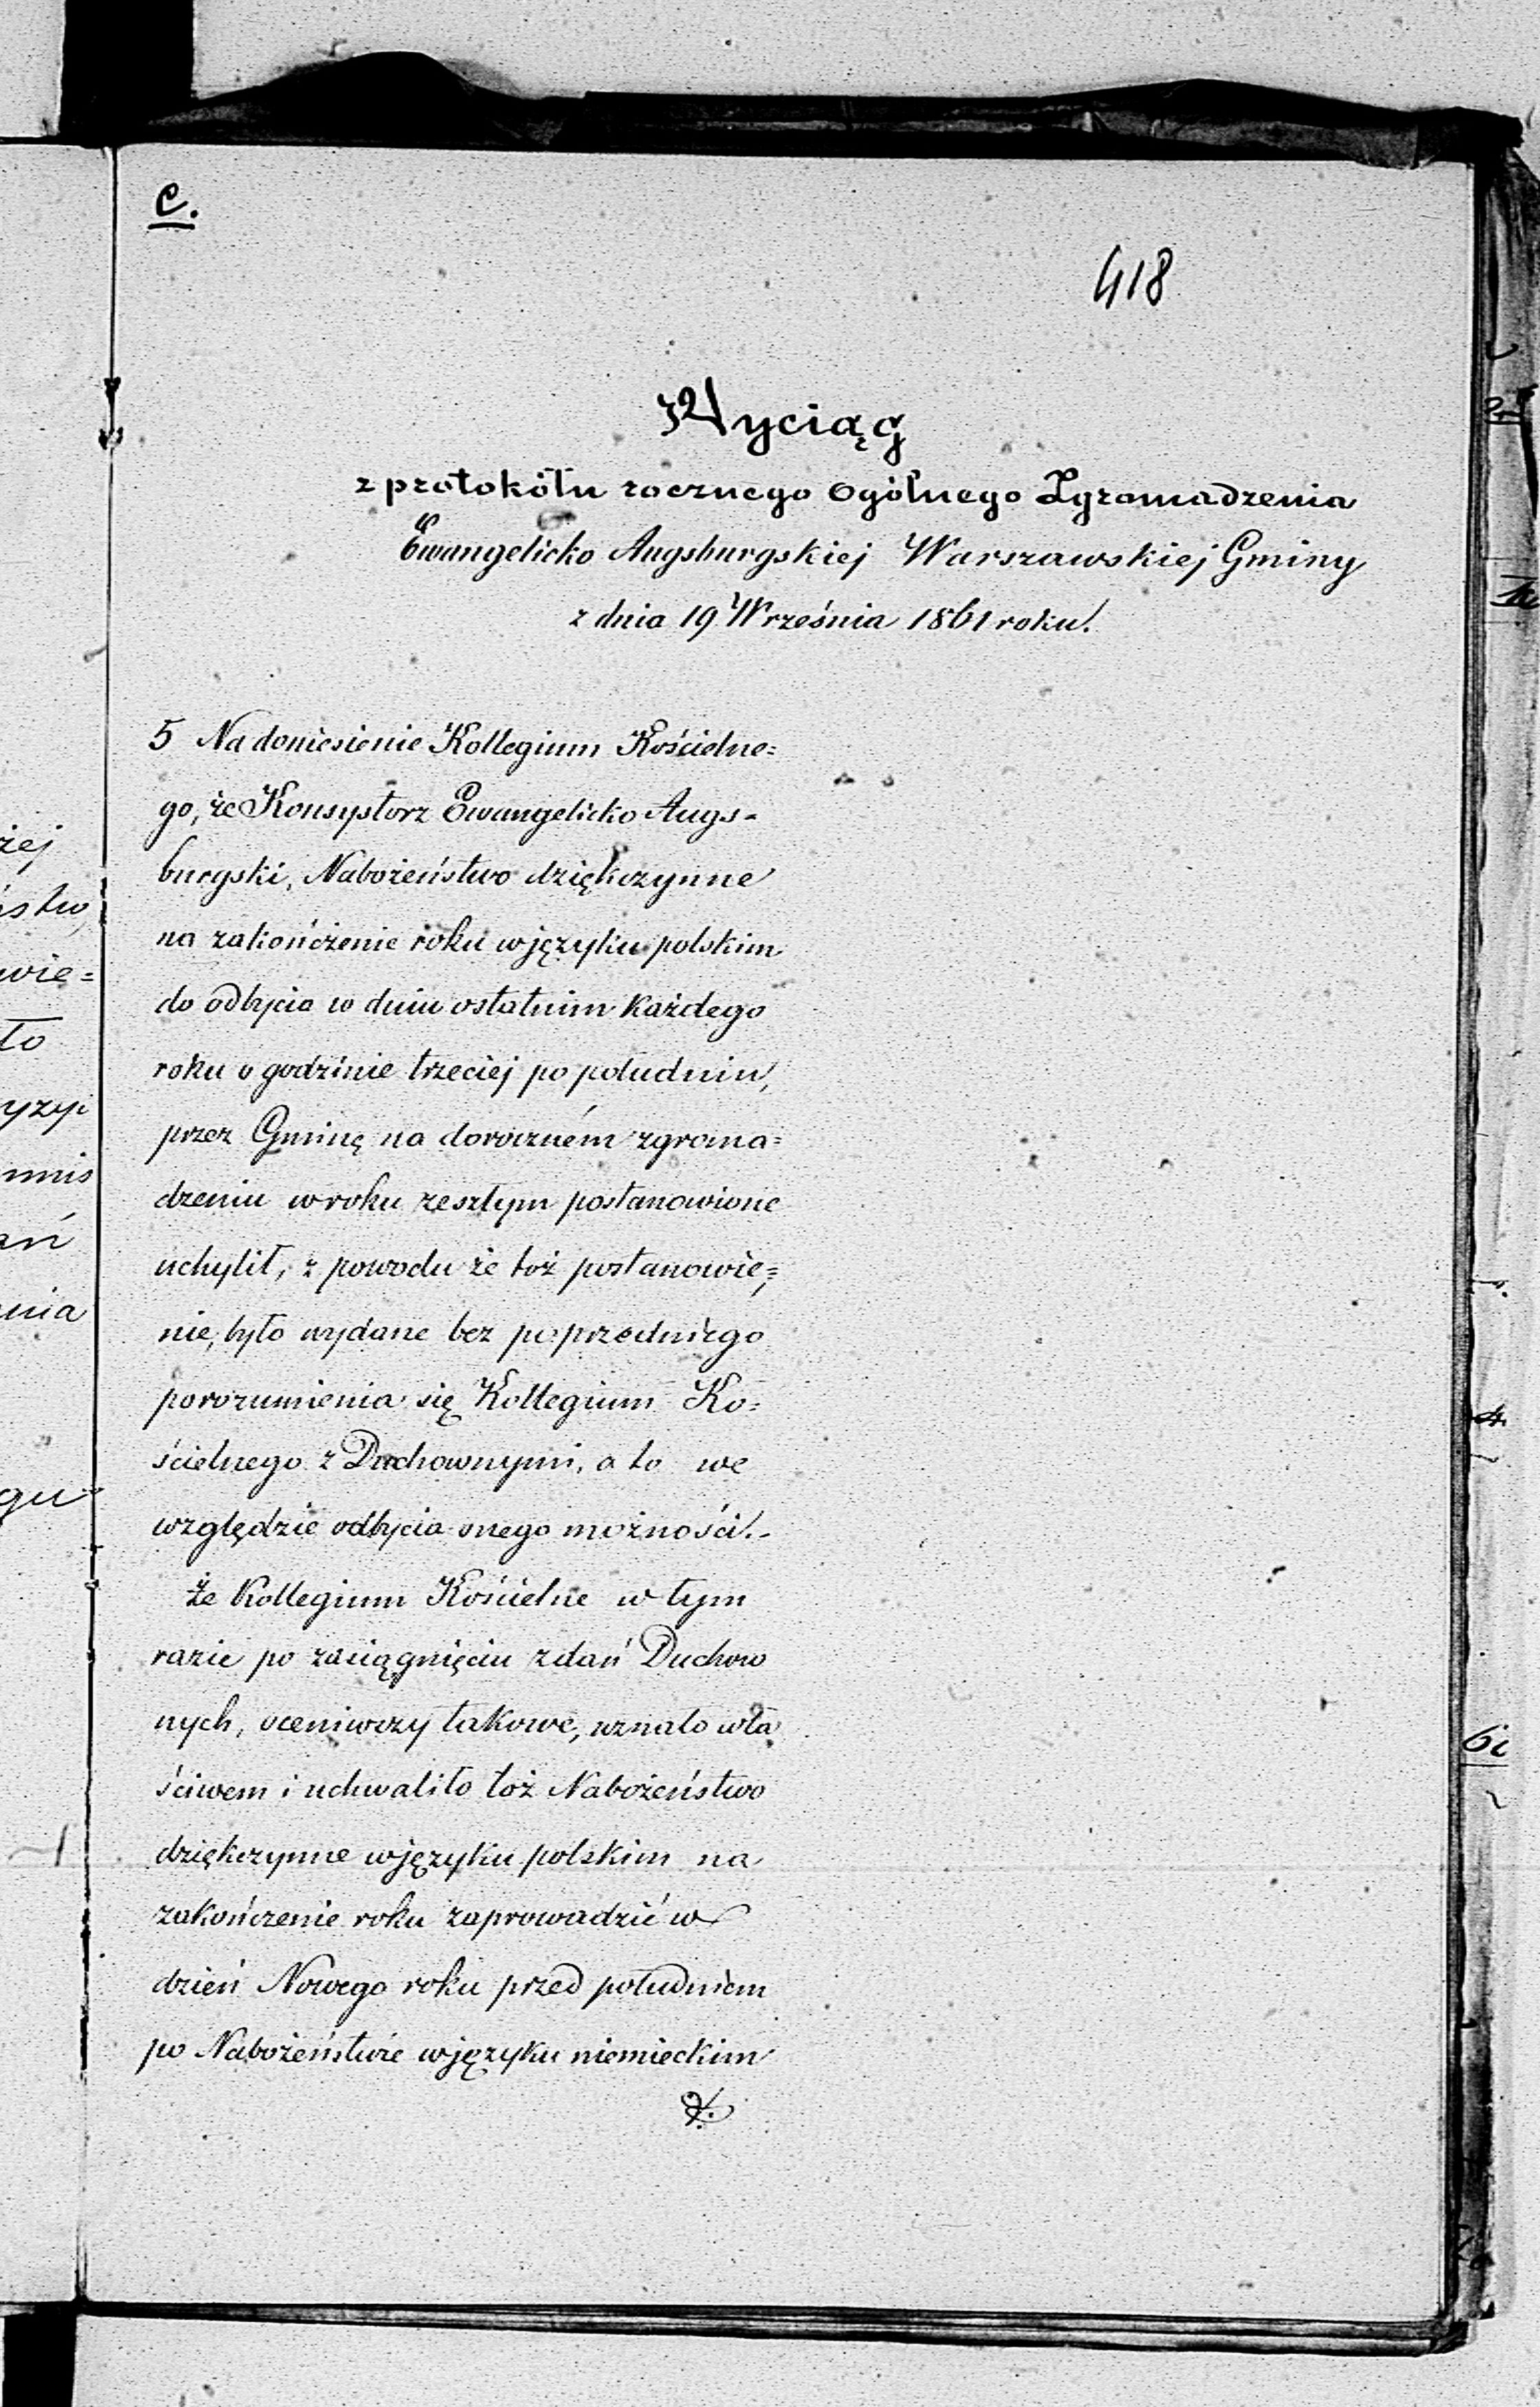 C.
418
Wyciąg
z protokółu rocznego Ogólnego Zgromadzenia
Ewangelicko Augsburgskiej Warszawskiej Gminy
z dnia 19 Września 1861 roku.
5 Na doniesienie Kollegium Kościelne=
go, że Konsystorz Ewangelicko Augs-
burgski, Nabożeństwo dziękczynne
na zakończenie roku w języku polskim
do odbycia w dniu ostatnim każdego
roku o godzinie trzeciej po południu,
przez Gminę na doroczném zgroma=
dzeniu w roku zeszłym postanowione
uchylił, z powodu że toż postanowie=
nie, było wydane bez poprzedniego
porozumienia się Kollegium Ko=
ścielnego z Duchownymi, a to we
względzie odbycia onego możności.-
Że Kollegium Kościelne w tym
razie po zasiągnięciu zdań Duchow
nych, oceniwszy takowe, uznało wła
ściwem i uchwaliło toż Nabożeństwo
dziękczynne w języku polskim na
zakończenie roku zaprowadzić w
dzień Nowego roku przed południem
po Nabożeństwie w języku niemieckim
żej
ństw,
wie=
to
yzyi
mnis
ań
nia
gu